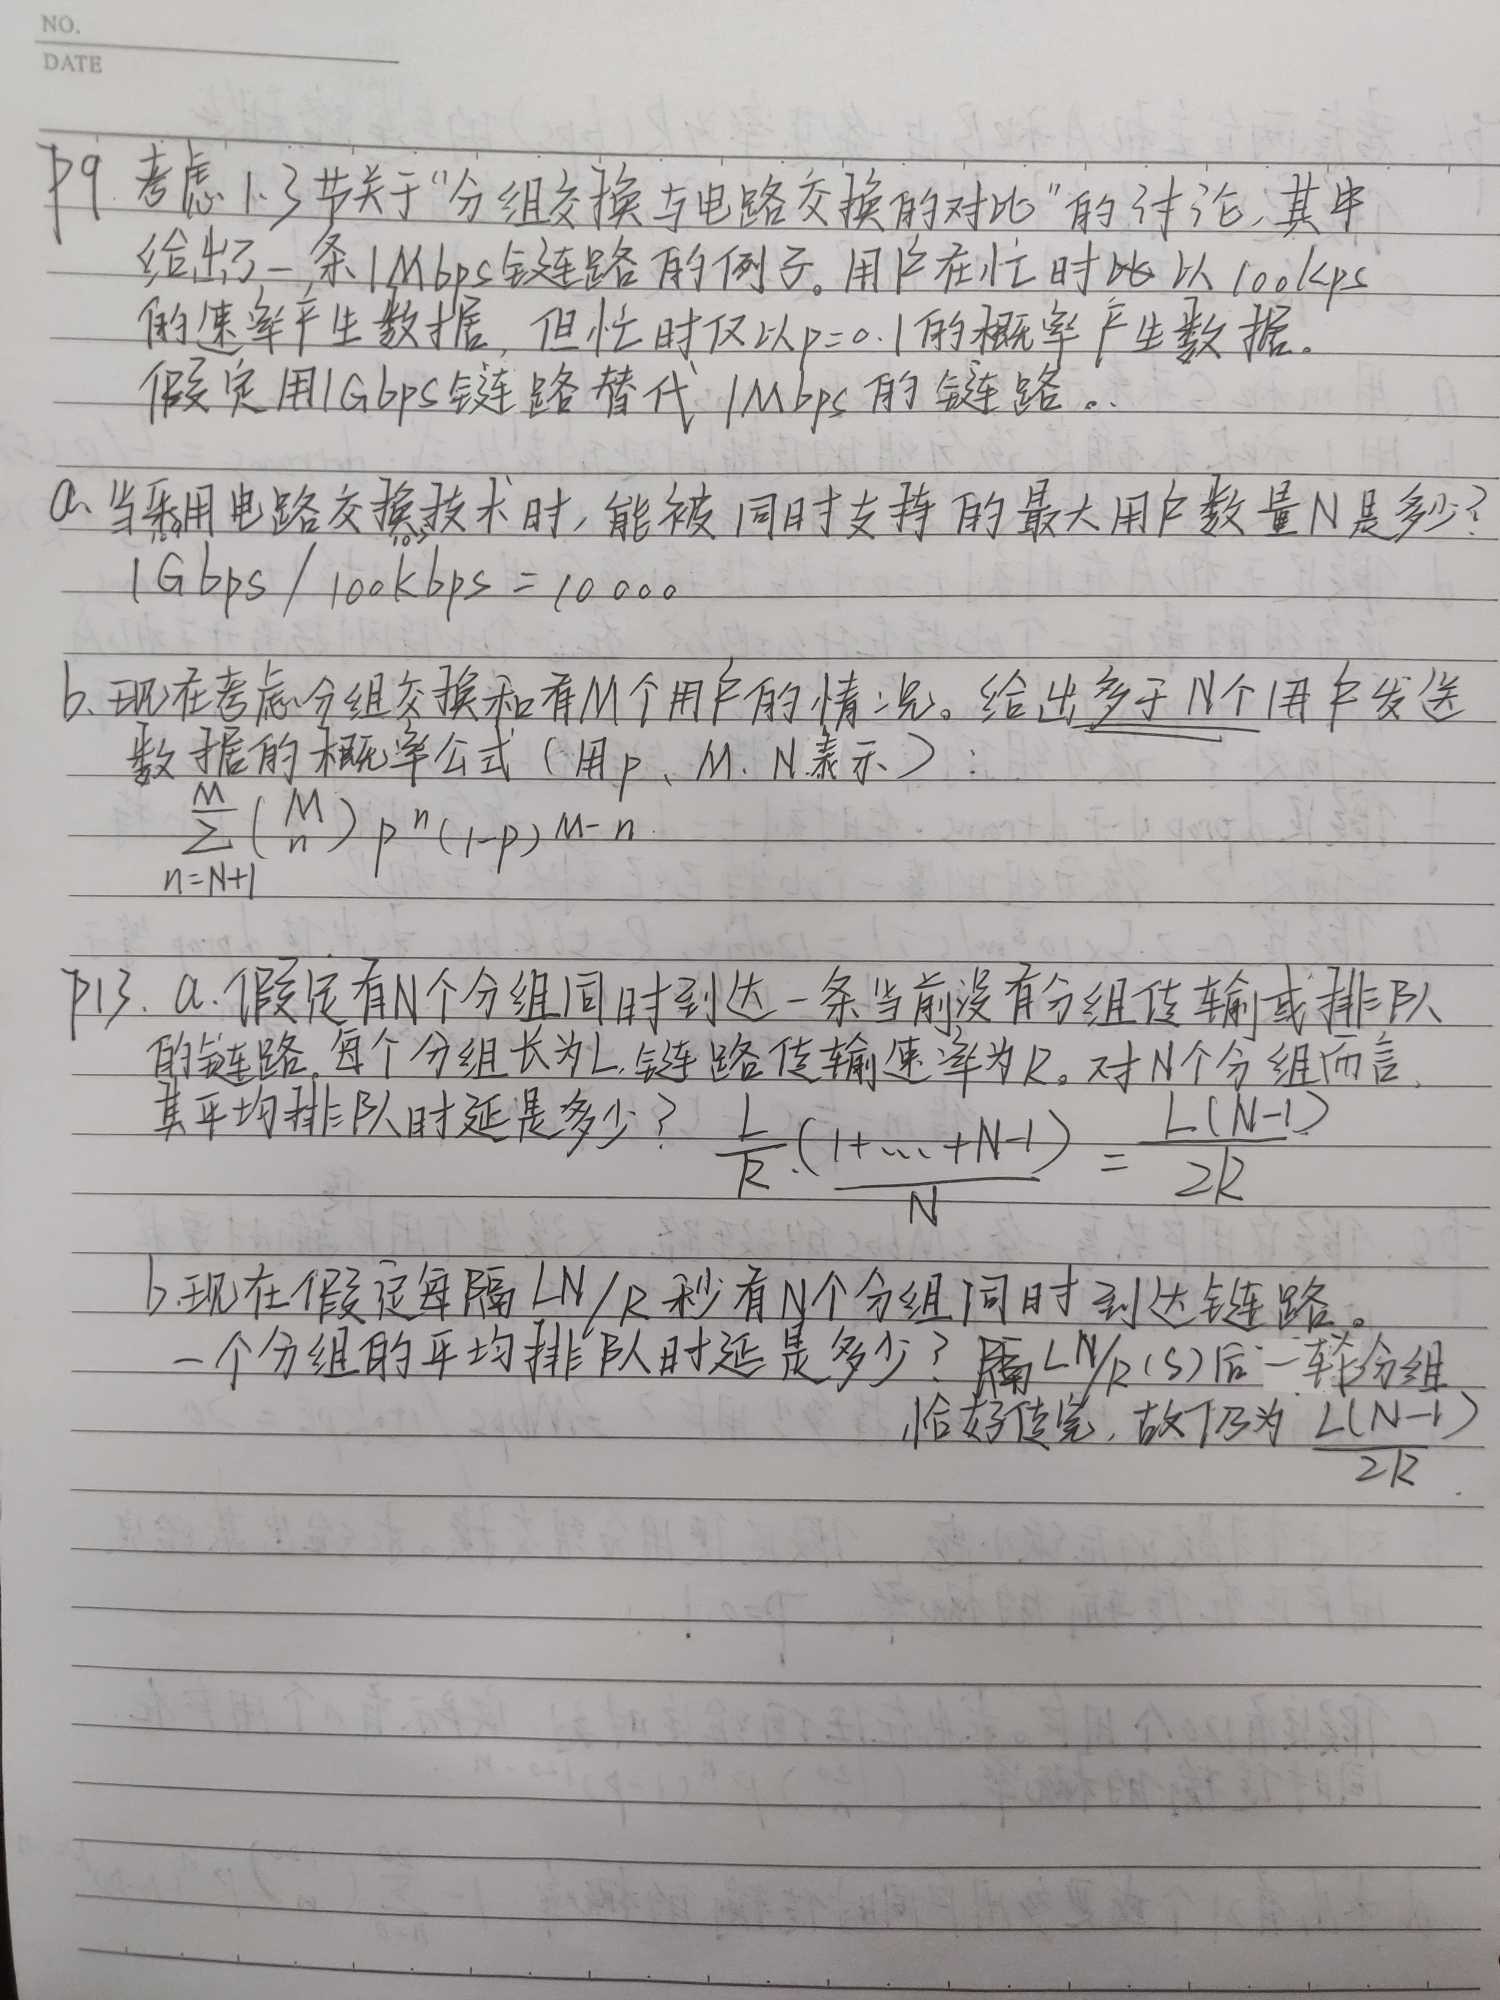 NO.
DATE
P9. 考虑1.3节关于"分组交换与电路交换的对比"的讨论,其中
给出了一条1Mbps链路的例子。用户在忙时以100kps
的速率产生数据,但忙时仅以p=0.1的概率产生数据。
假定用1Gbps链路替代1Mbps的链路。
a. 当采用电路交换技术时,能被同时支持的最大用户数量N是多少?
1Gbps / 100kbps = 10000
b. 现在考虑分组交换和有M个用户的情况。给出多于N个用户发送
数据的概率公式(用p、M、N表示):
∑_{n=N+1}^{M} (M n) p^n (1-p)^{M-n}
P13. a. 假定有N个分组同时到达一条当前没有分组传输或排队
的链路。每个分组长为L,链路传输速率为R。对N个分组而言,
其平均排队时延是多少? L/R · (1+...+N-1)/N = L(N-1)/2R
b. 现在假定每隔LN/R秒有N个分组同时到达链路。
一个分组的平均排队时延是多少? 隔LN/R(s)后一轮分组
恰好传完,故仍为 L(N-1)/2R